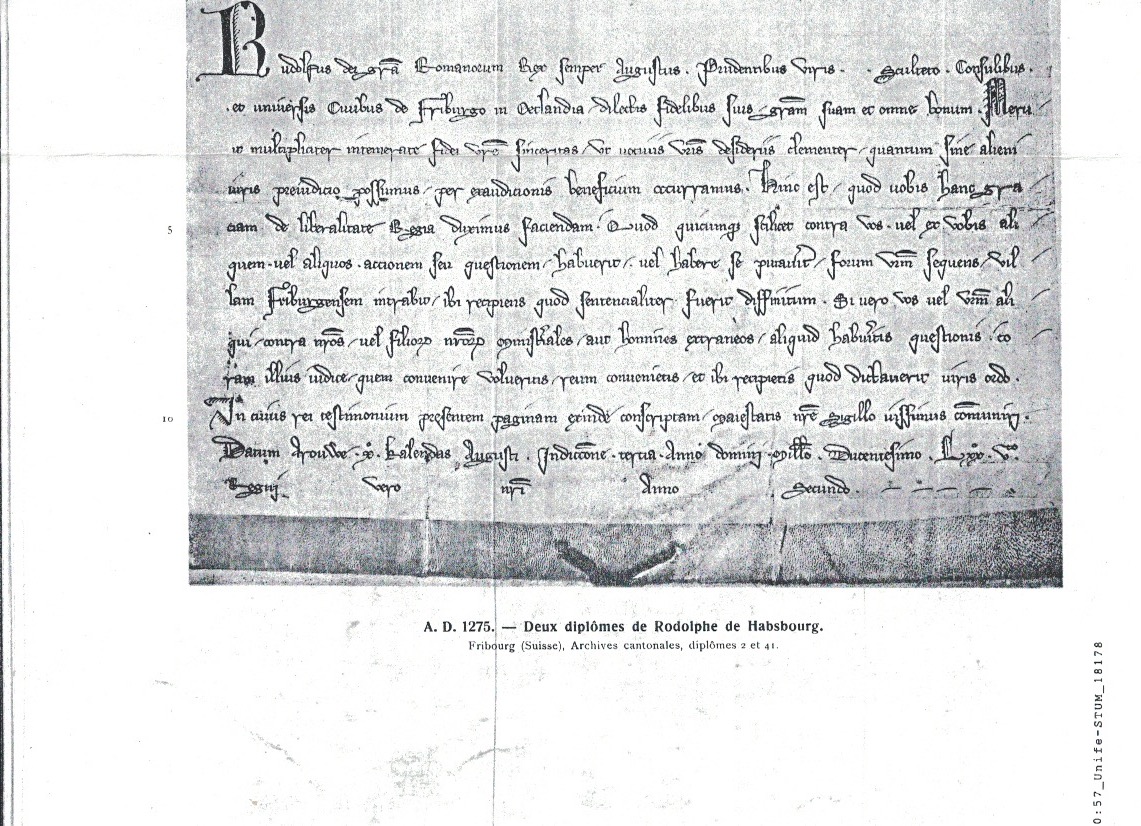 Rudolfus dei grã Romanorum Rex semper Augustus . Prudentibus viris . . Sculteto . Consulibus .
. et universis Civibus de Friburgo in Oetlandia / dilectis fidelibus suis / grãm suam et omne bonum . Meru
it multipliciter intemerate fidei vrẽ sinceritas / Ut votivis vrĩs desideriis clementer / quantum sine alieni
iuris preiudicio possumus / per exauditionis beneficium occurramus . Hinc est / quod vobis hanc gra
5 ciam de liberalitate Regia duximus faciendam . Quod quicumqꝫ scilicet contra vos . vel ex vobis ali
quem . vel aliquos . accionem seu questionem / habuerit / vel habere se putauerit / forum vrm̃ sequens / vil
lam Friburgensem intrabit / ibi recipiens quod sentencialiter fuerit diffinitum . Si vero vos vel vrm̃ ali
qui / contra nrõs / vel filioꝝ nrõꝝ ministeriales / aut homines extraneos / aliquid habueritis questionis . co
ram illius iudice / quem convenire volueritis / reum convenietis / et ibi recipietis quod dictaverit iuris ordo .
10 In cuius rei testimonium presentem paginam exinde conscriptam / maiestatis nrẽ sigillo iussimus cõmuniri .
Datum Arowe . x . kalendas Augusti . Indictione . tercia . Anno domini . millo . Ducentesimo . Lxx . vͦ .
Regni vero nrĩ Anno Secundo .
A. D. 1275. — Deux diplômes de Rodolphe de Habsbourg.
Fribourg (Suisse), Archives cantonales, diplômes 2 et 41.
0:57_Unife-STUM_18178